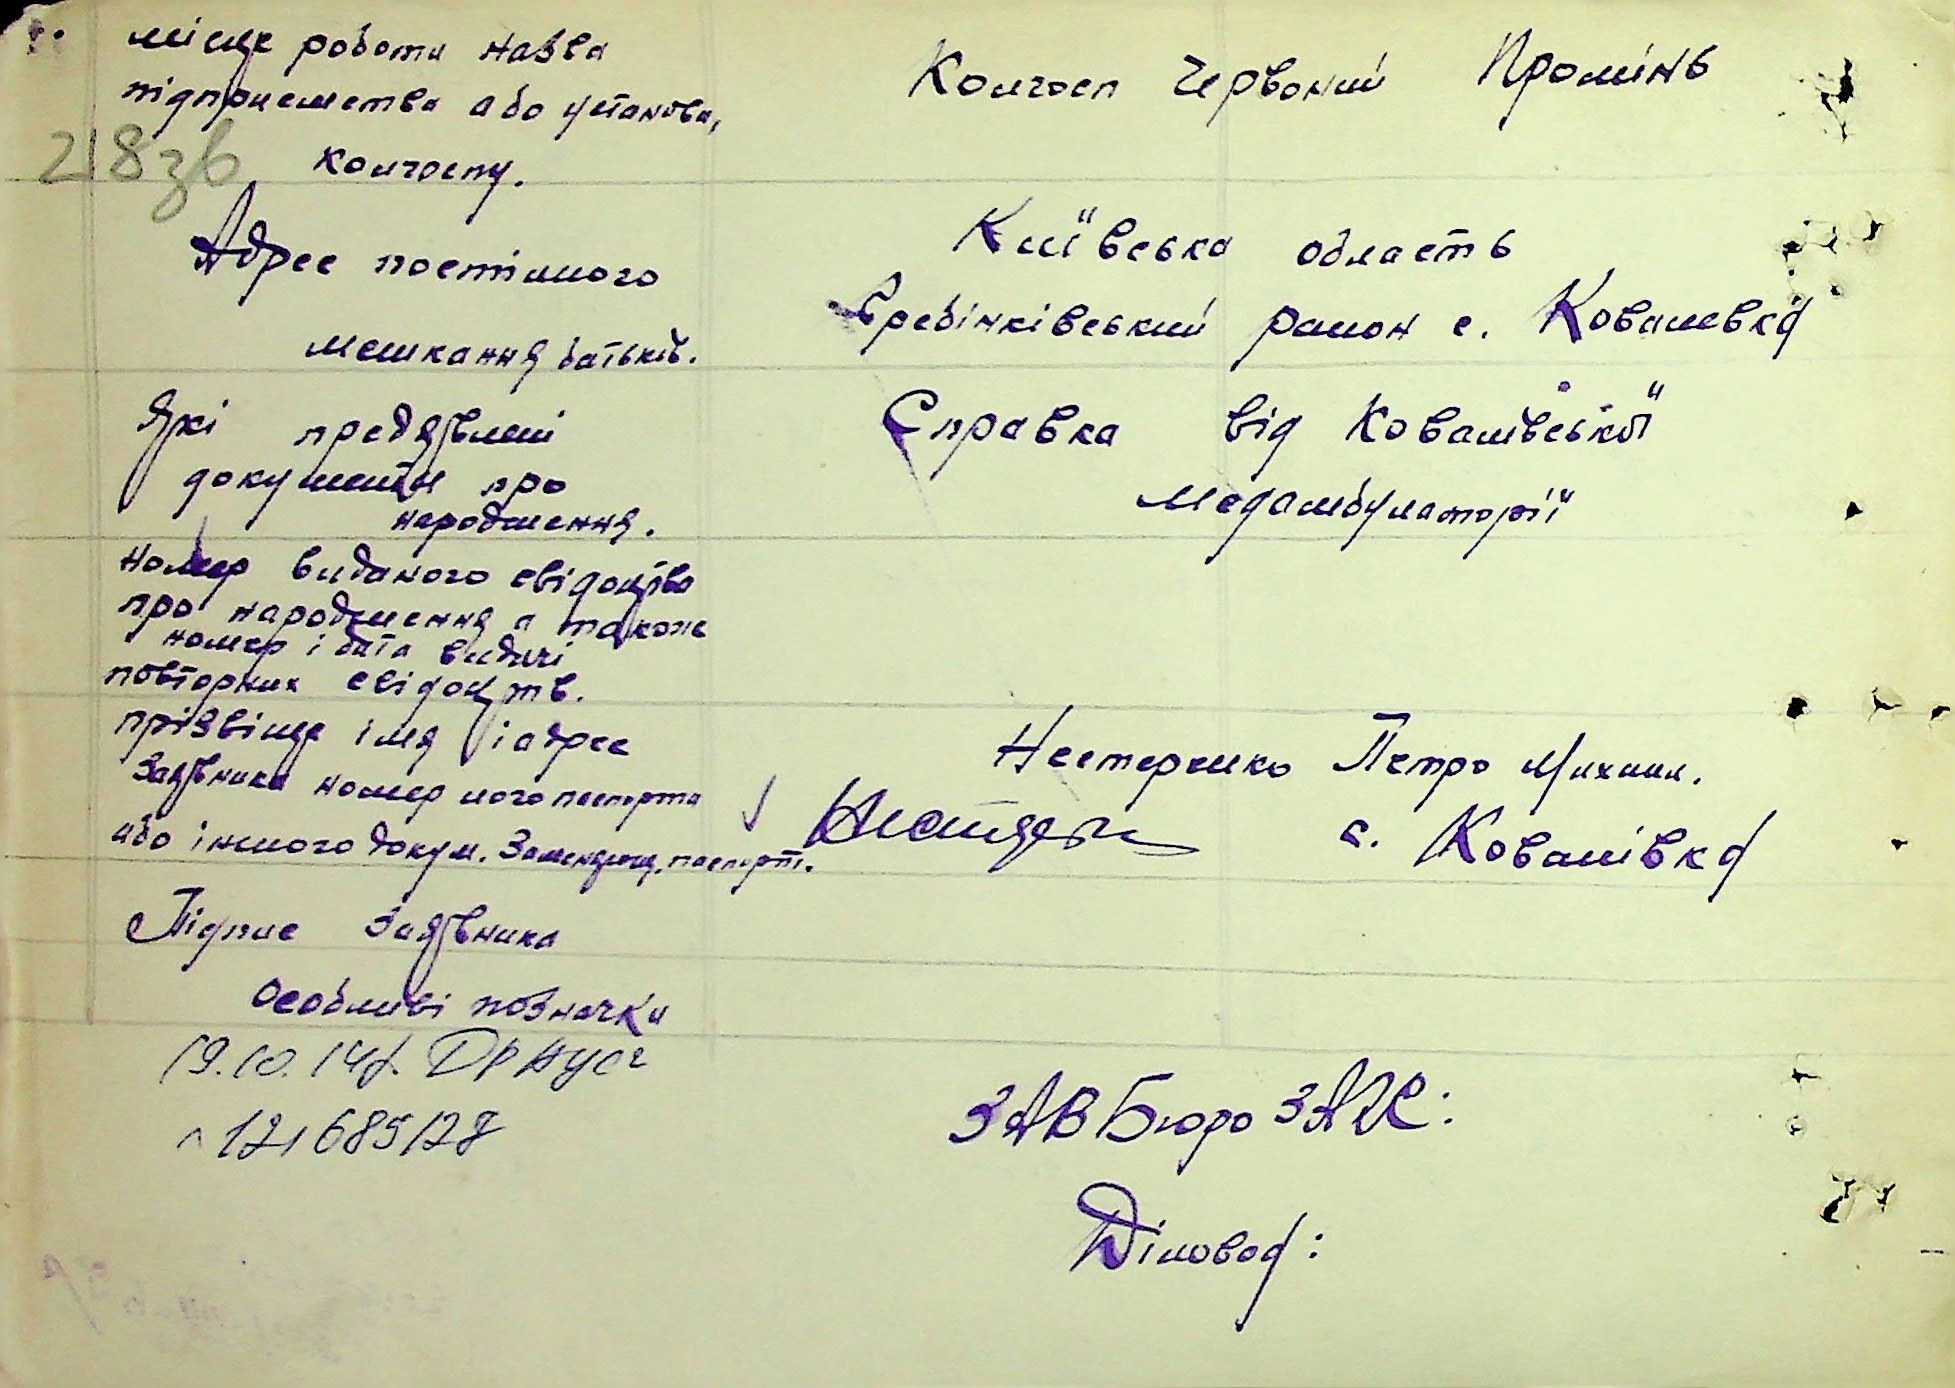 місце роботи назва
підприємства або установи,
колгоспу.
Колгосп Червоний Промінь
218зв
Адрес постійного
мешкання батьків.
Київська область
Гребінківський район с. Ковалевка
Які предявлені
документи про
народження.
Справка від Ковалівської
медамбулаторії
Номер виданого свідоцтва
про народження а також
номер і дата видачі
повторних свідоцтв.
прізвище імя і адрес
Заявника номер його паспорта
або іншого докум. Заменяющ. паспорт.
Нестеренко Петро Михайл.
с. Ковалівка
Підпис Заявника
Особливі позначки
19.10.14
121685128
ЗАВ Бюро ЗАГС:
Діловод: